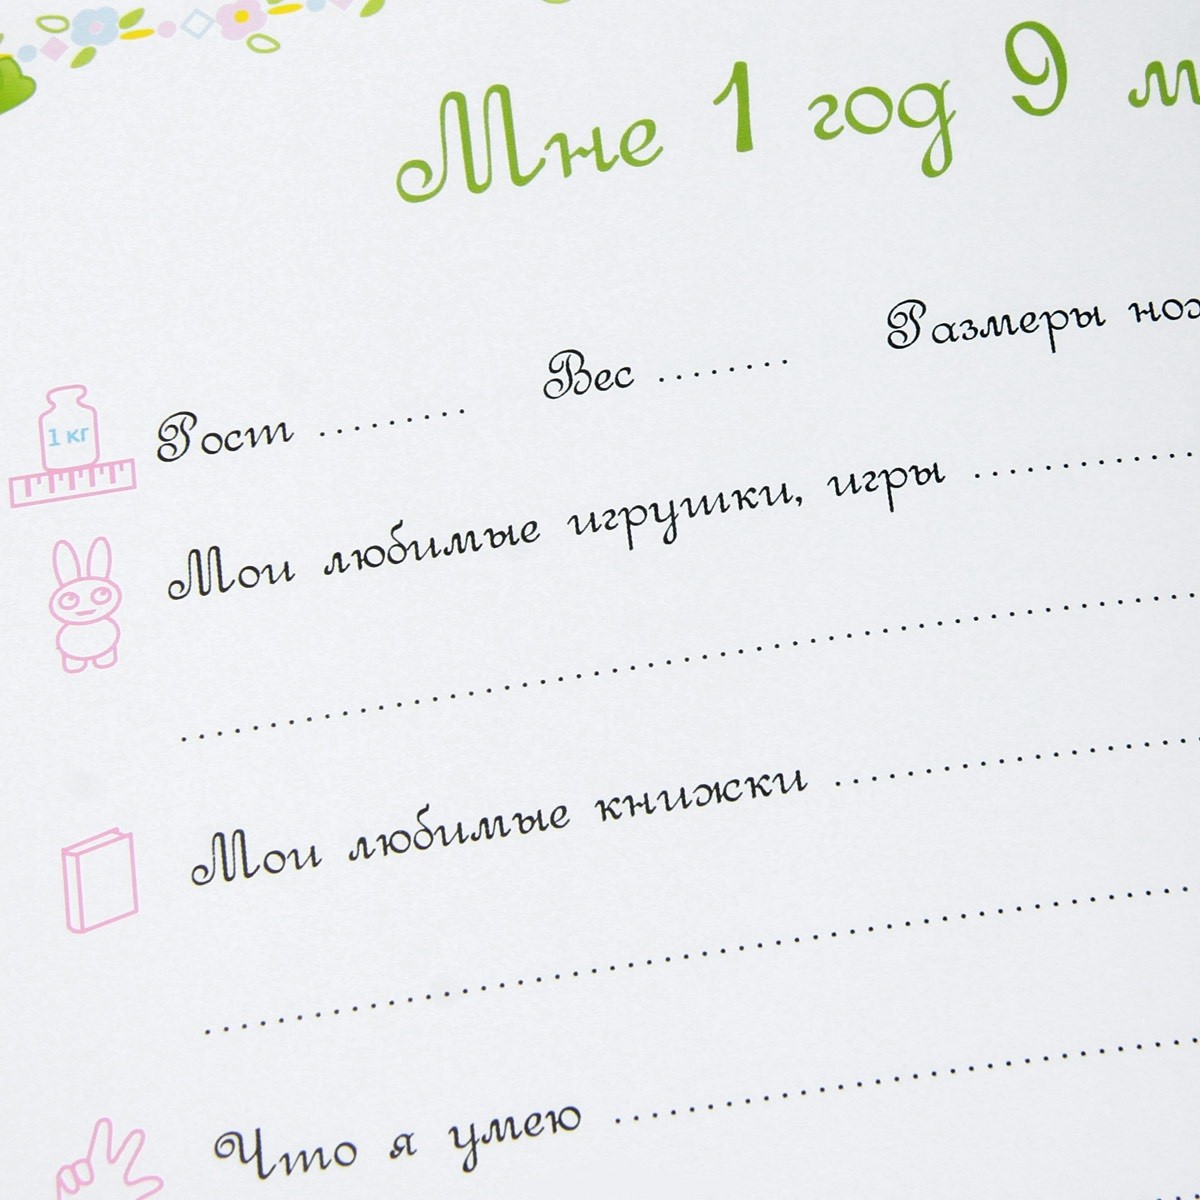 Мне 1 год 9 м
1 кг
Рост ......... Вес ........ Размеры нож
Мои любимые игрушки, игры .............
Мои любимые книжки .....................
Что я умею .................................